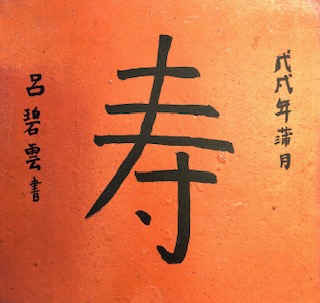 戊戌年蒲月
寿
呂碧雲書